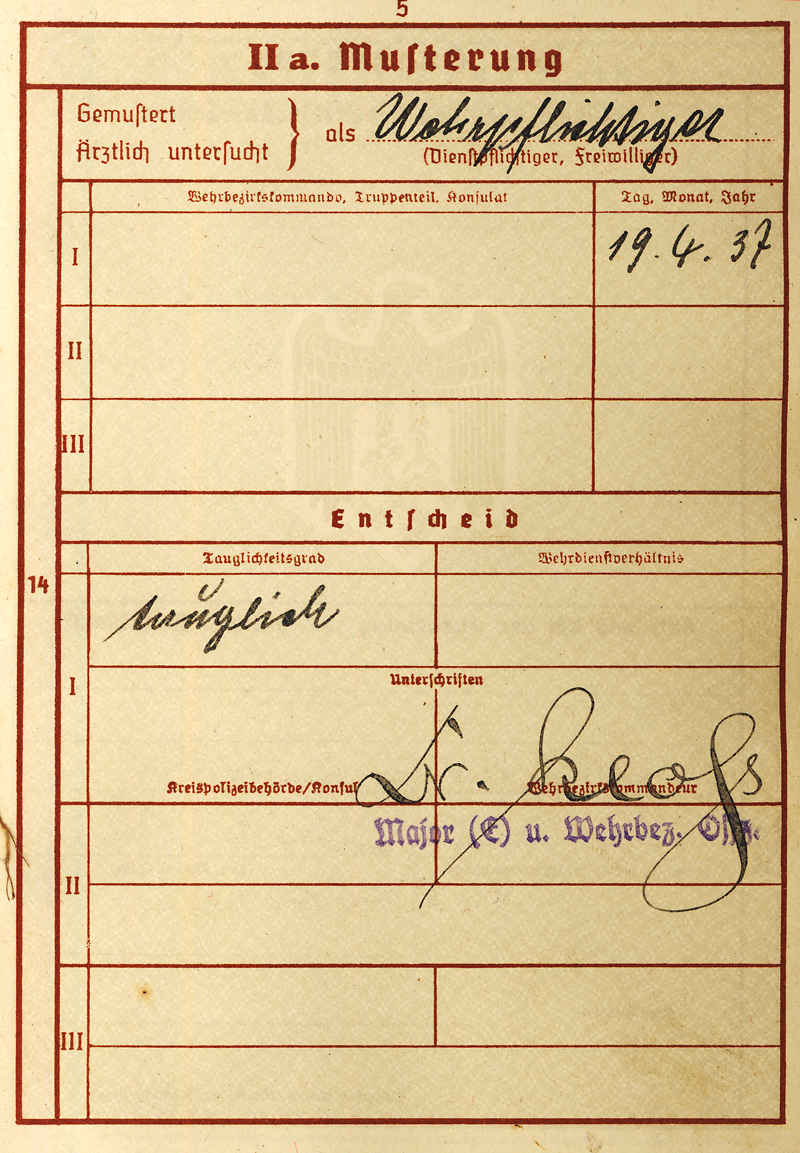 5
II a. Musterung
Gemustert
Ärztlich untersucht } als Wehrpflichtiger
(Dienstpflichtiger, Freiwilliger)
Wehrbezirkskommando, Truppenteil, Konsulat
Tag, Monat, Jahr
I
19. 4. 37
II
III
Entscheid
Tauglichkeitsgrad
Wehrdienstverhältnis
14
tauglich
I
Unterschriften
Dr.
Kreispolizeibehörde/Konsul
Wehrbezirkskommandeur
Major (E) u. Wehrbez. Offz.
II
III